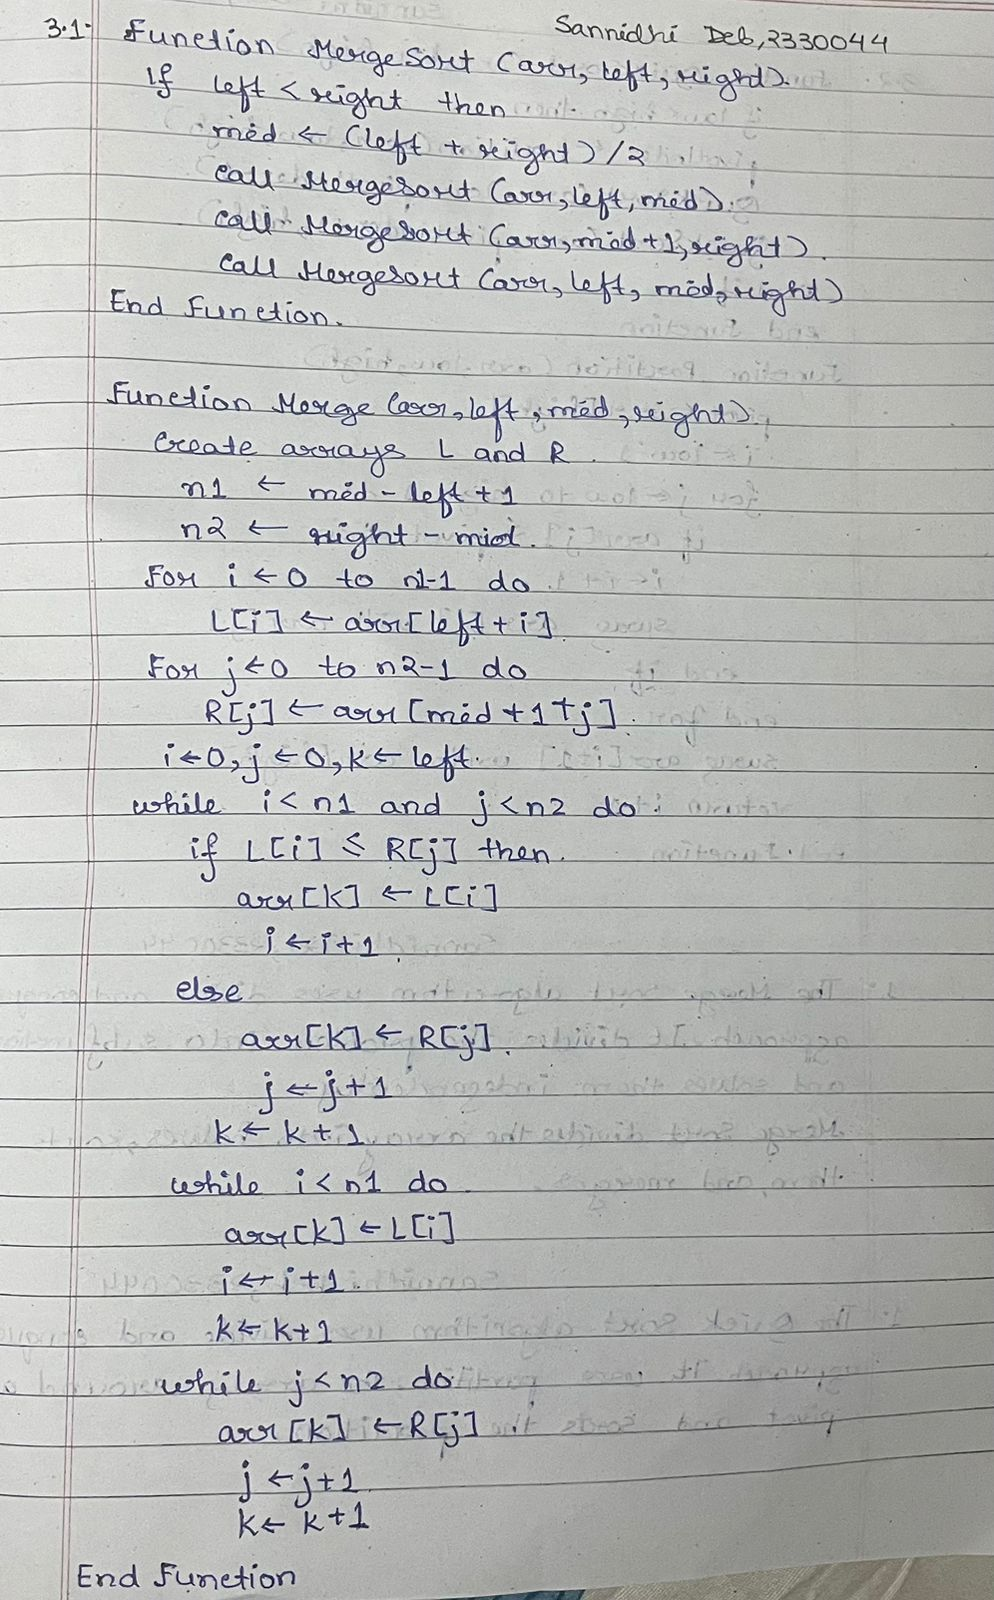 3.1- Sannidhi Deb, 2330044
Function MergeSort (arr, left, right).
If left < right then
mid ← (left + right) / 2
call MergeSort (arr, left, mid).
call MergeSort (arr, mid + 1, right).
call Mergesort (arr, left, mid, right)
End Function.
Function Merge (arr, left, mid, right).
Create arrays L and R.
n1 ← mid - left + 1
n2 ← right - mid.
For i ← 0 to n1-1 do.
L[i] ← arr[left + i].
For j ← 0 to n2-1 do
R[j] ← arr[mid + 1 + j].
i ← 0, j ← 0, k ← left.
while i < n1 and j < n2 do
if L[i] ≤ R[j] then.
arr[k] ← L[i]
i ← i + 1.
else
arr[k] ← R[j].
j ← j + 1
k ← k + 1
while i < n1 do
arr[k] ← L[i]
i ← i + 1.
k ← k + 1
while j < n2 do
arr[k] ← R[j]
j ← j + 1
k ← k + 1
End Function